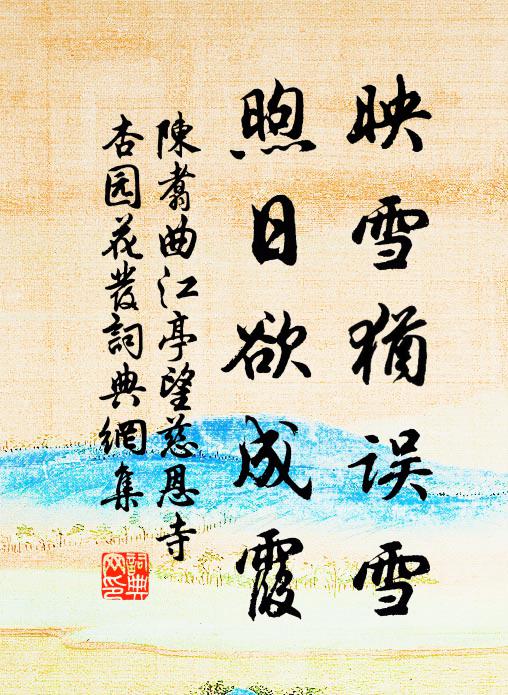 映雪犹误雪
煦日欲成霞
陳翥曲江亭望慈恩寺
杏园花發詞典網集
詞典网印